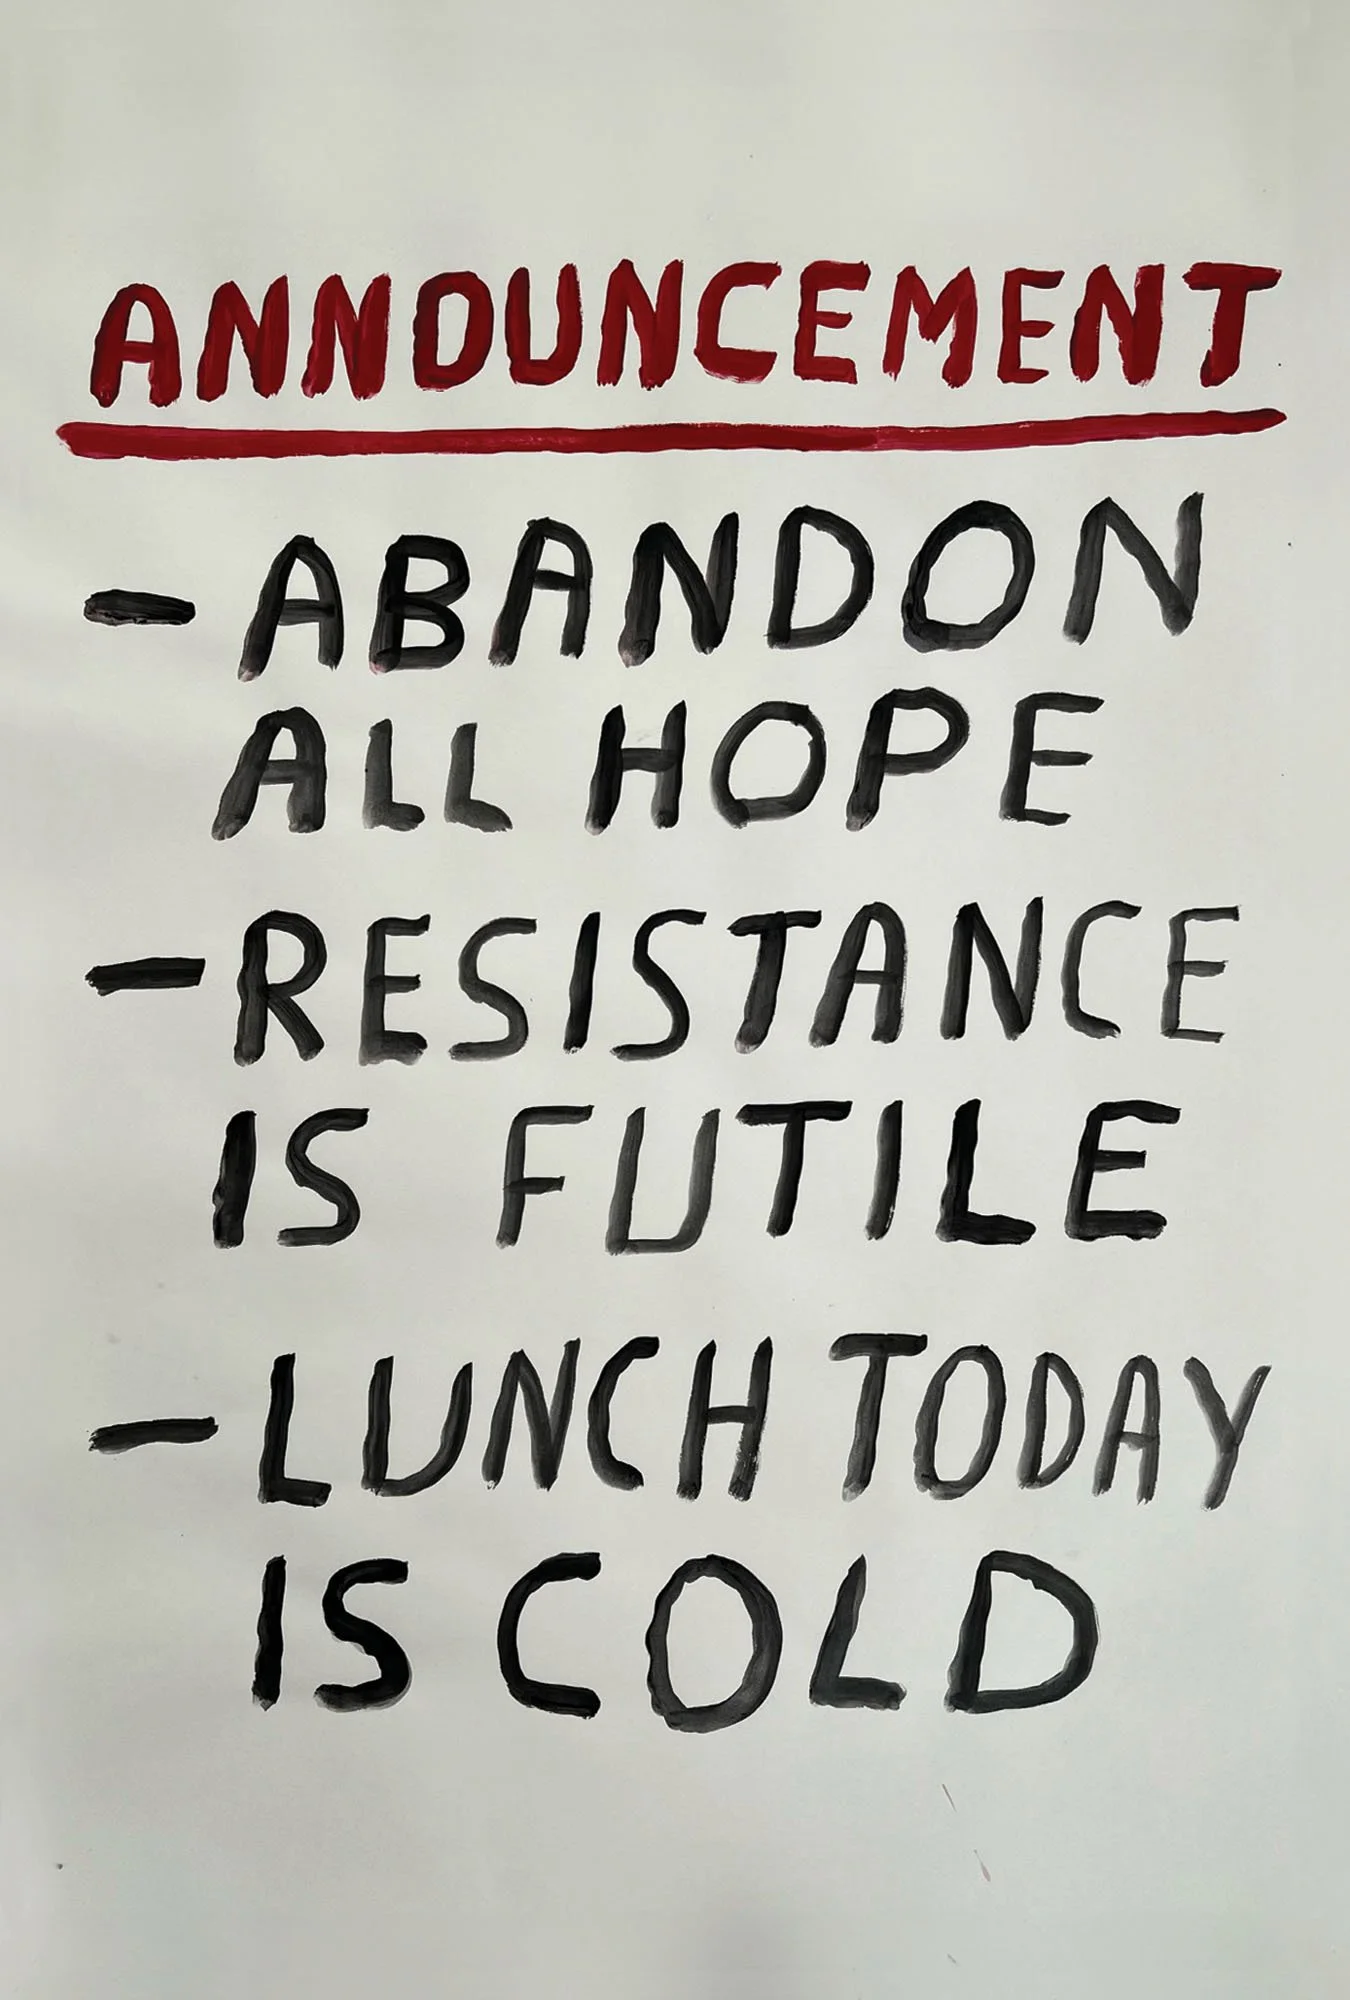 ANNOUNCEMENT
- ABANDON
ALL HOPE
- RESISTANCE
IS FUTILE
- LUNCH TODAY
IS COLD